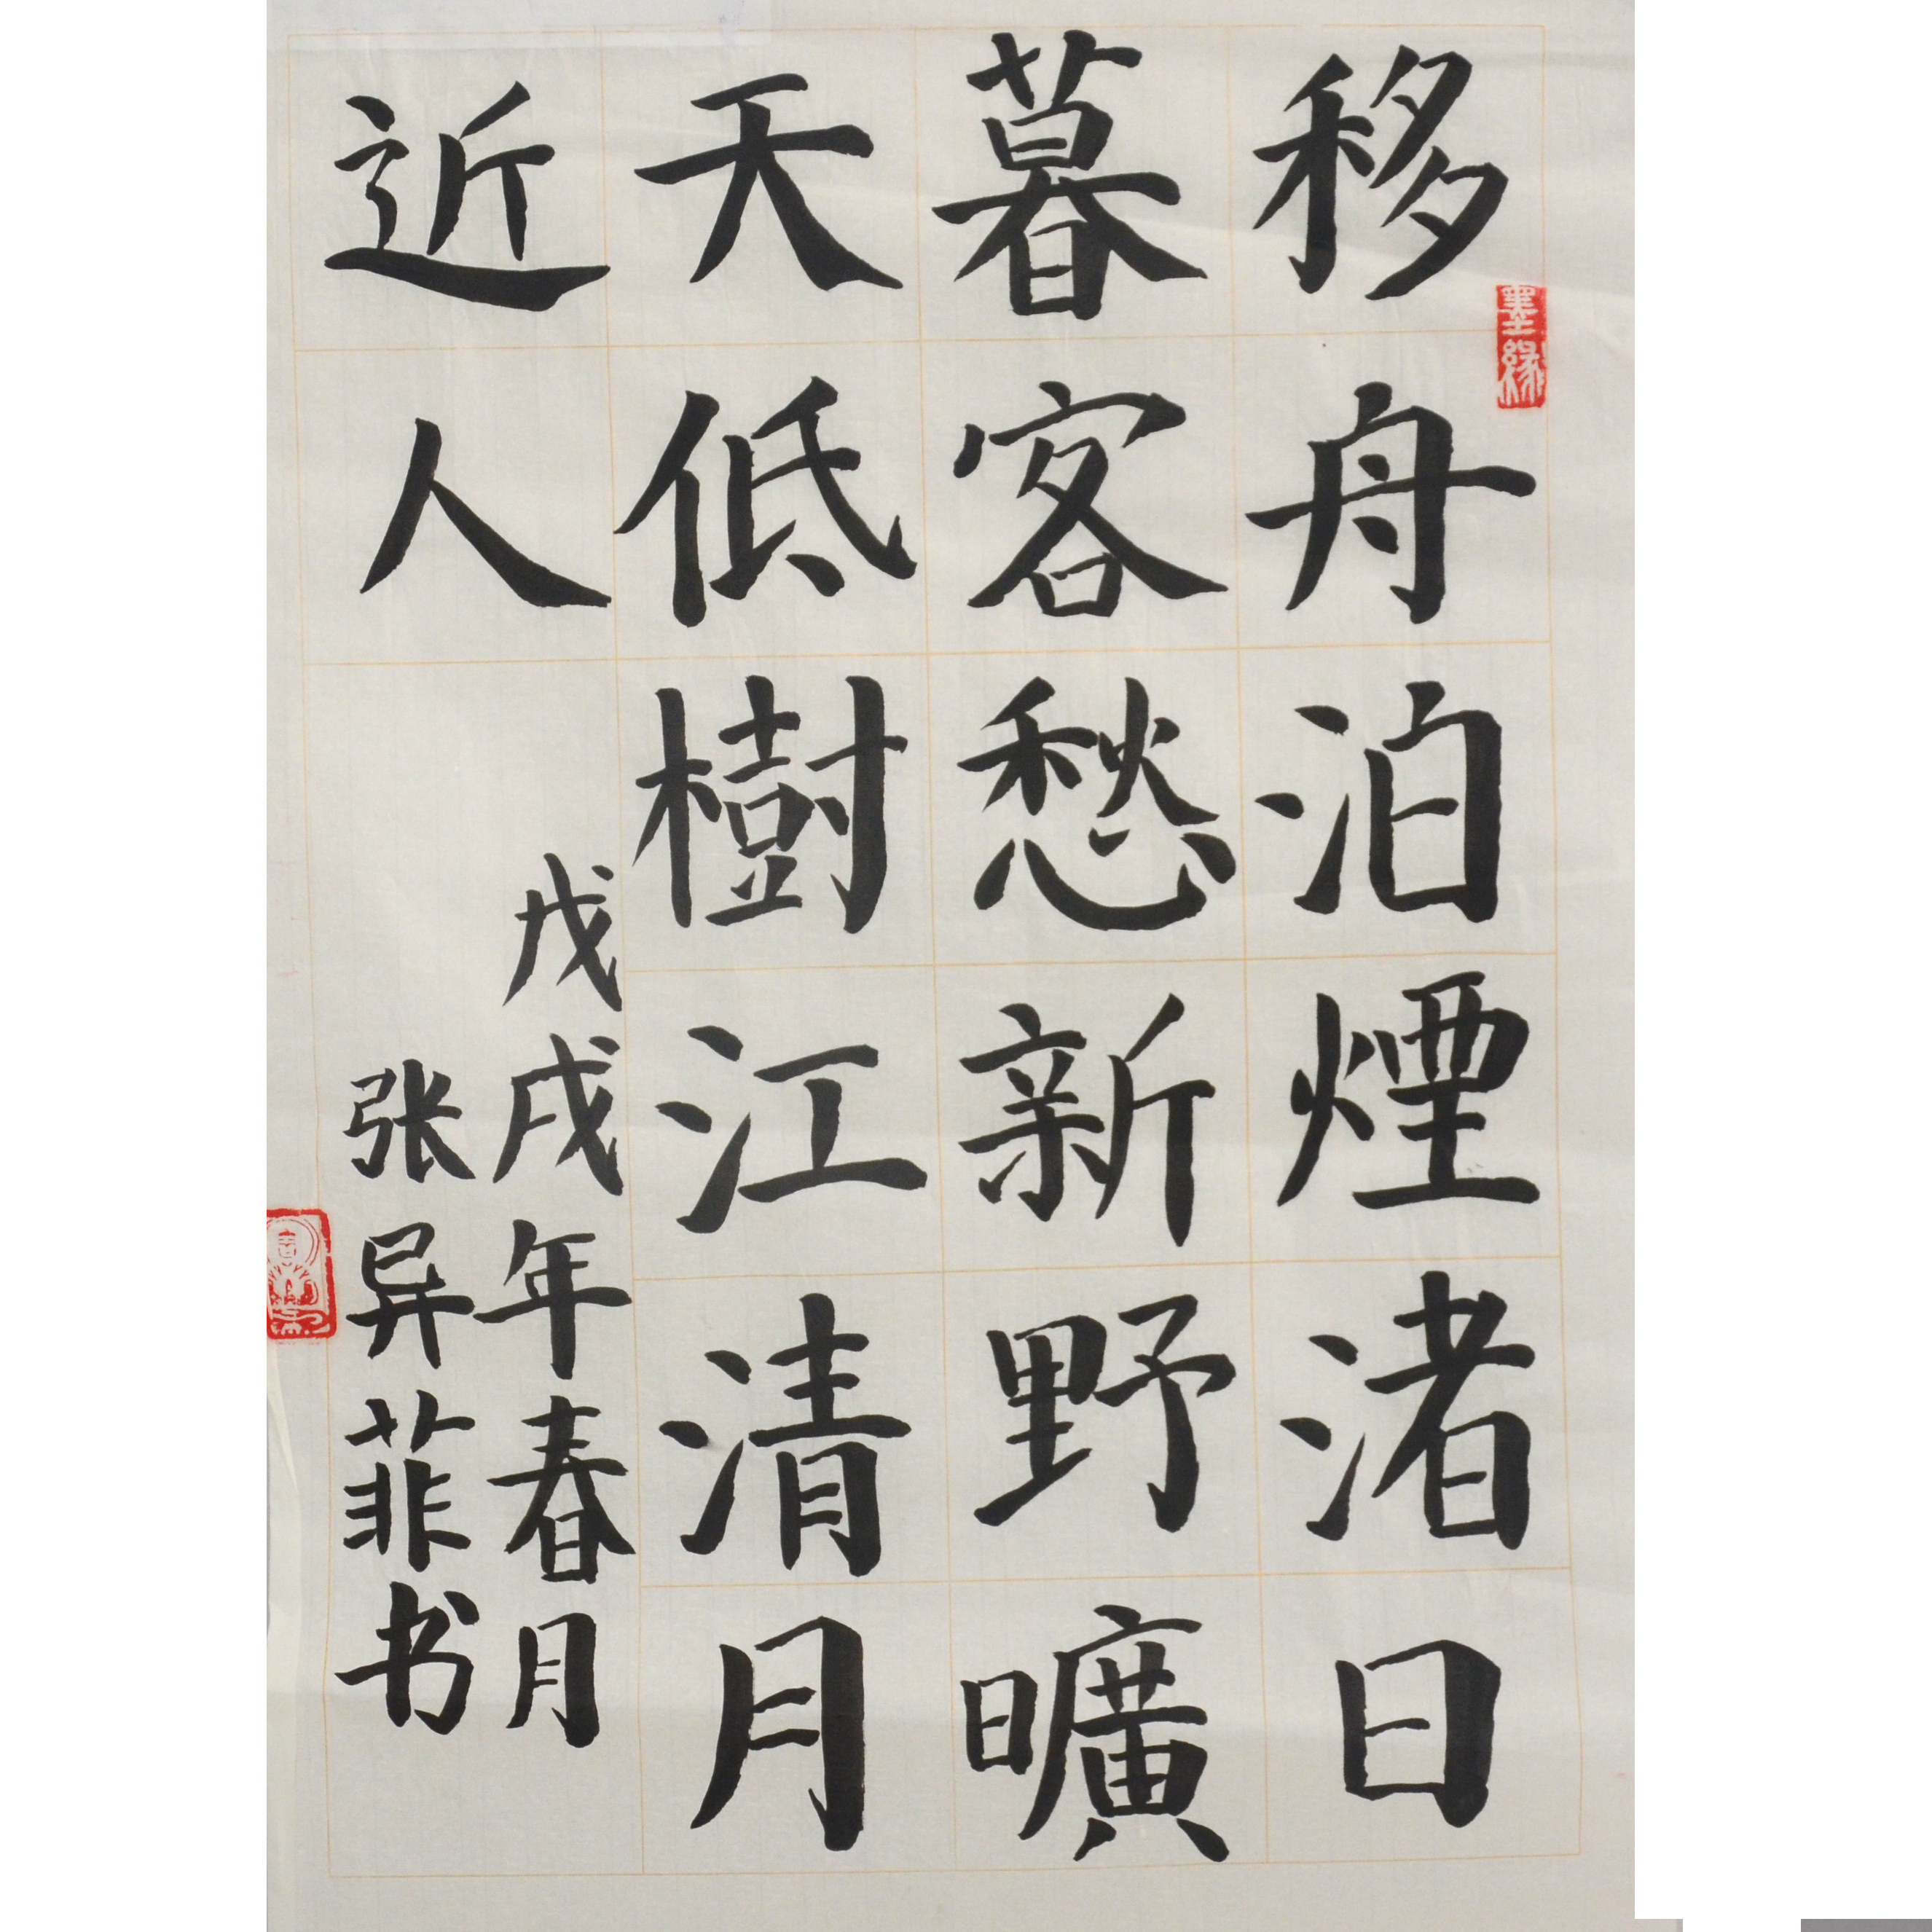 移舟泊煙渚日
暮客愁新野曠
天低樹江清月
近人
戊戌年春月
张异菲书
墨緣